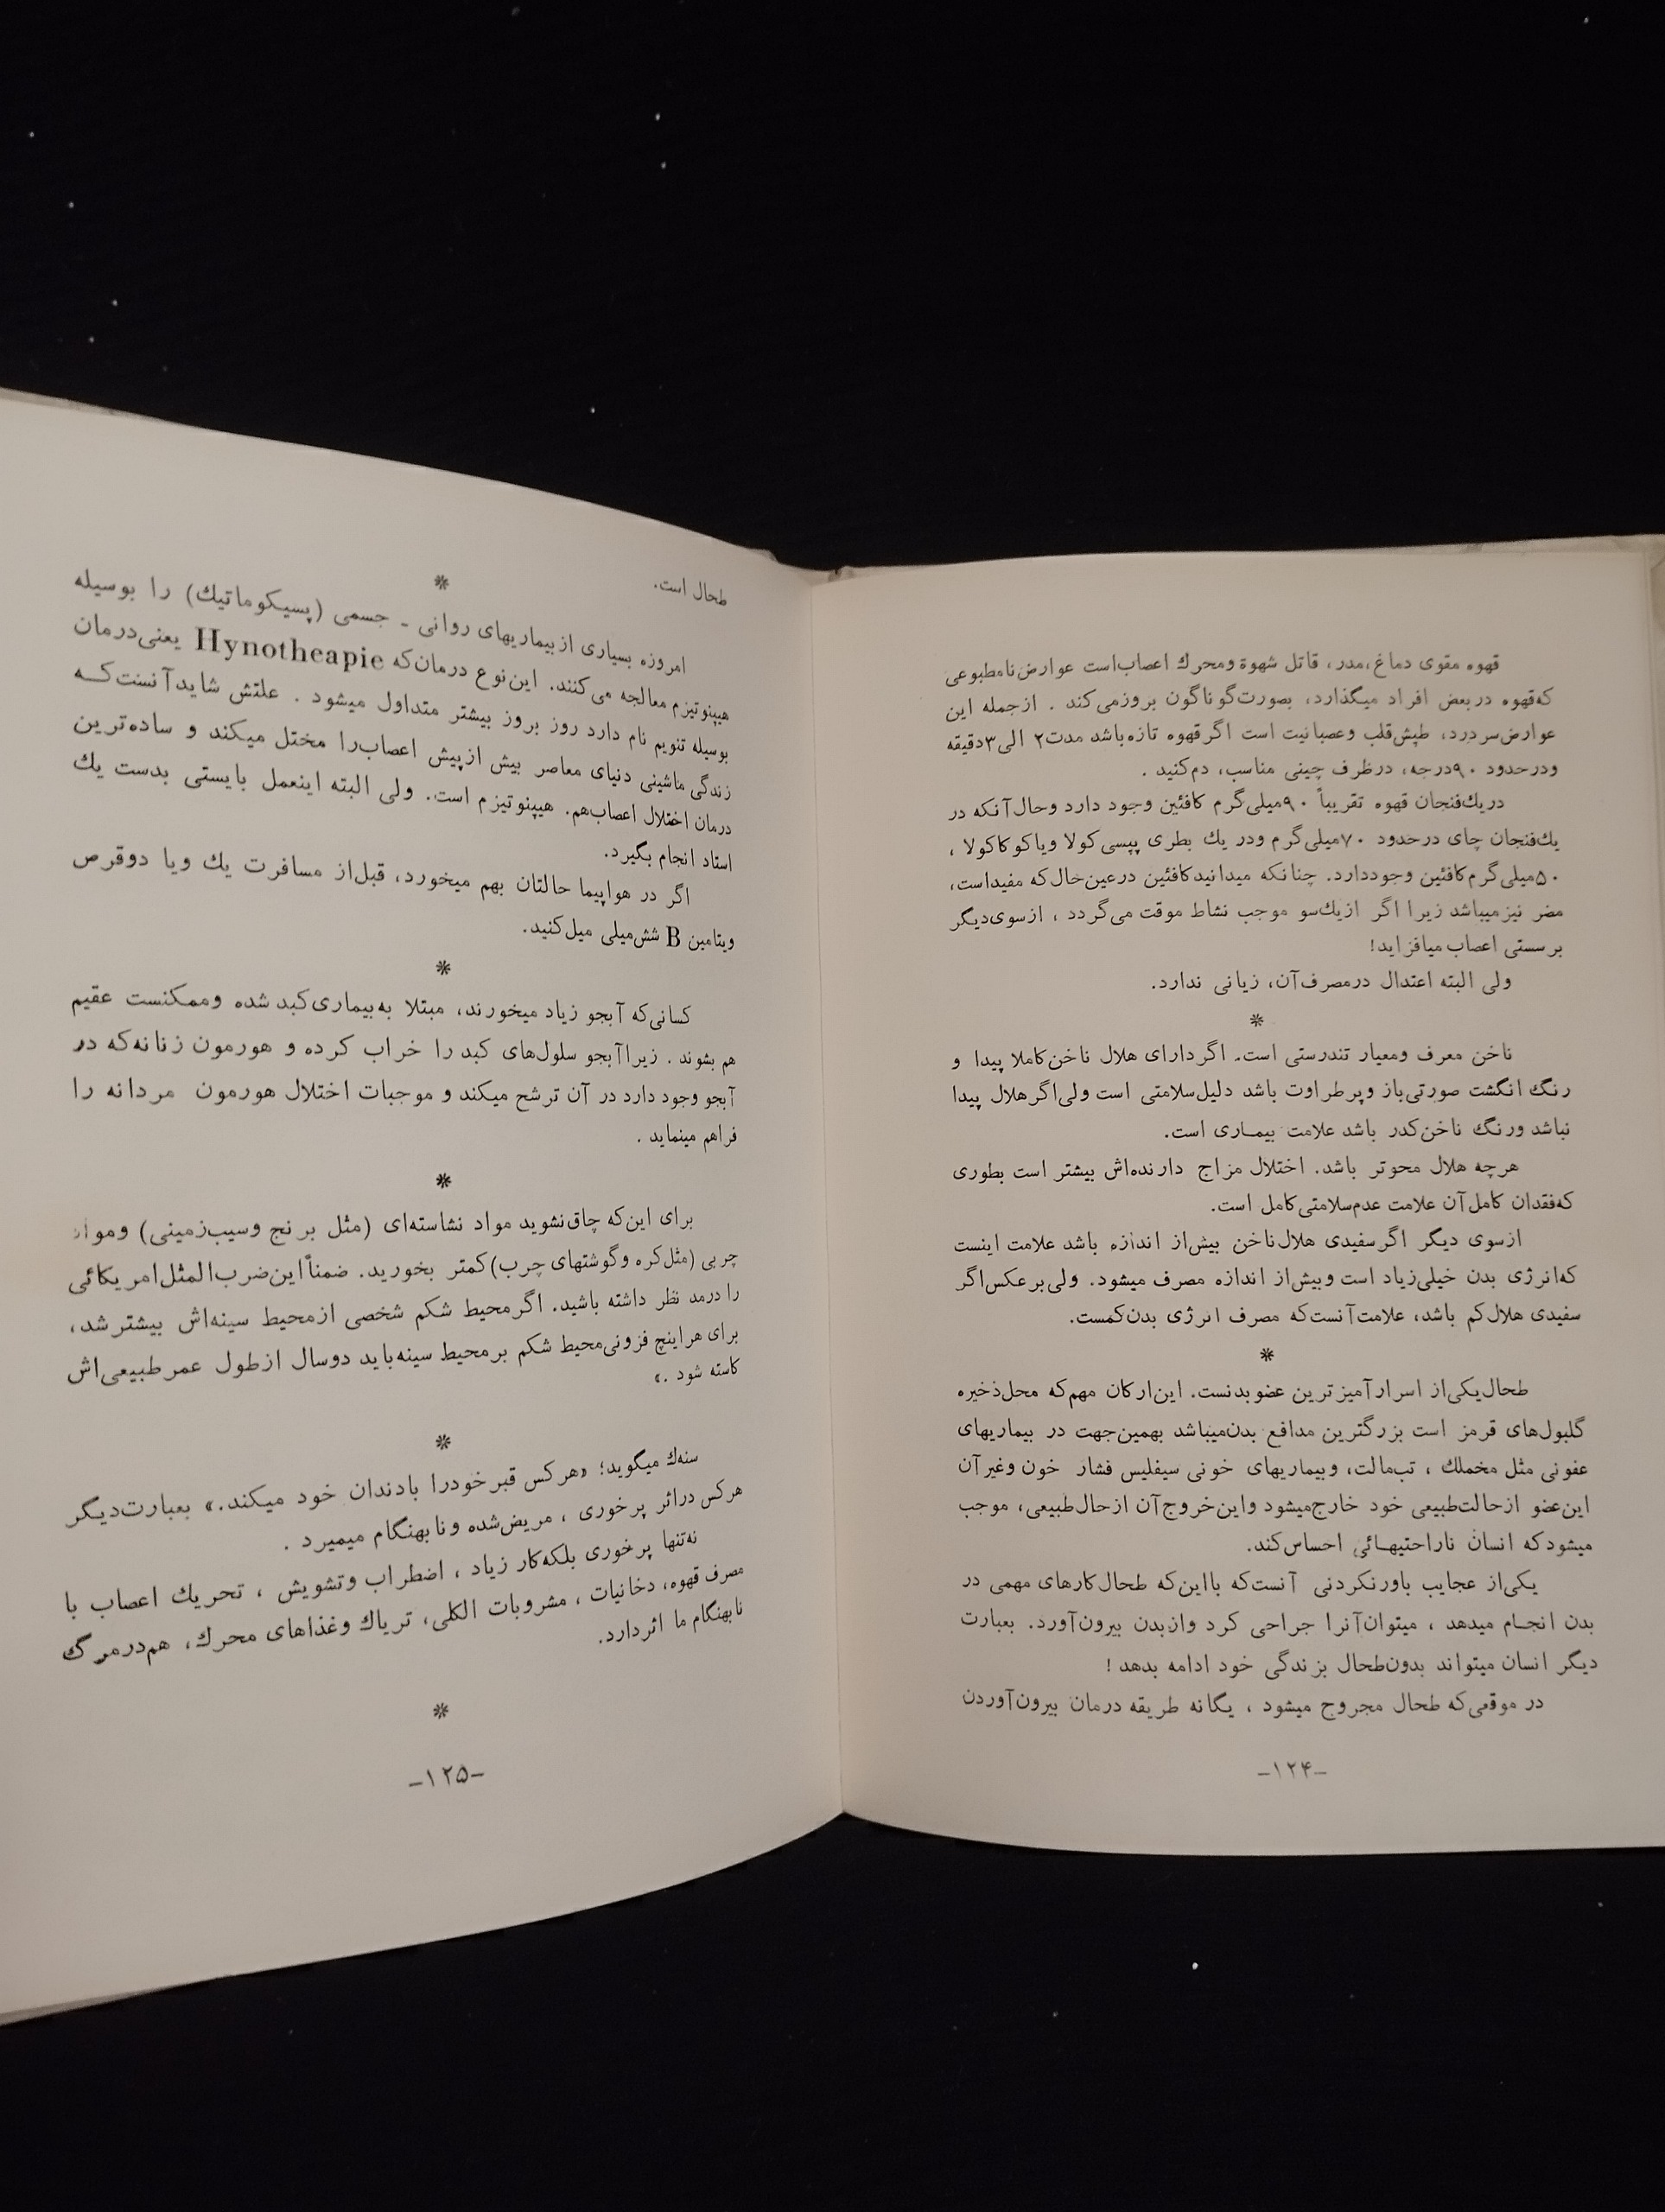 قهوه مقوی دماغ،مدر، قاتل شهوة ومحرك اعصاب‌است عوارض‌نامطبوعی
که‌قهوه دربعض افراد میگذارد، بصورت‌گوناگون بروزمی‌کند . ازجمله این
عوارض‌سردرد، طپش‌قلب وعصبانیت است اگرقهوه تازه‌باشد مدت۲ الی۳دقیقه
ودرحدود ۹۰درجه، درظرف چینی مناسب، دم‌کنید .
دریك‌فنجان قهوه تقریباً ۹۰میلی‌گرم کافئین وجود دارد وحال‌آنکه در
یك‌فنجان چای درحدود ۷۰میلی‌گرم ودر یك بطری پپسی‌کولا ویاکوکاکولا ،
۵۰میلی‌گرم‌کافئین وجوددارد. چنانکه میدانیدکافئین درعین‌حال‌که مفیداست،
مضر نیزمیباشد زیرا اگر ازیك‌سو موجب نشاط موقت می‌گردد ، ازسوی‌دیگر
برسستی اعصاب میافزاید!
ولی البته اعتدال درمصرف‌آن، زیانی ندارد.
*
ناخن معرف ومعیار تندرستی است. اگردارای هلال ناخن‌کاملا پیدا و
رنگ انگشت صورتی‌باز وپرطراوت باشد دلیل‌سلامتی است ولی‌اگرهلال پیدا
نباشد ورنگ ناخن‌کدر باشد علامت بیماری است.
هرچه هلال محوتر باشد. اختلال مزاج دارنده‌اش بیشتر است بطوری
که‌فقدان کامل‌آن علامت عدم‌سلامتی‌کامل است.
ازسوی دیگر اگرسفیدی هلال‌ناخن بیش‌از اندازه باشد علامت اینست
که‌انرژی بدن خیلی‌زیاد است وبیش‌از اندازه مصرف میشود. ولی‌برعکس‌اگر
سفیدی هلال‌کم باشد، علامت‌آنست‌که مصرف انرژی بدن‌کمست.
*
طحال‌یکی‌از اسرارآمیزترین عضوبدنست. این‌ارکان مهم‌که محل‌ذخیره
گلبول‌های قرمز است بزرگترین مدافع بدن‌میباشد بهمین‌جهت در بیماریهای
عفونی مثل مخملك ، تب‌مالت، وبیماریهای خونی سیفلیس فشار خون وغیرآن
این‌عضو ازحالت‌طبیعی خود خارج‌میشود واین‌خروج‌آن ازحال‌طبیعی، موجب
میشودکه انسان ناراحتیهائی احساس‌کند.
یکی‌از عجایب باورنکردنی آنست‌که بااین‌که طحال‌کارهای مهمی در
بدن انجام میدهد ، میتوان‌آنرا جراحی کرد واز‌بدن بیرون‌آورد. بعبارت
دیگر انسان میتواند بدون‌طحال بزندگی خود ادامه بدهد !
در موقعی‌که طحال مجروح میشود ، یگانه طریقه درمان بیرون‌آوردن
-۱۲۴-
طحال است.
*
امروزه بسیاری ازبیماریهای روانی - جسمی (پسیکوماتیك) را بوسیله
هیپنوتیزم معالجه می‌کنند. این‌نوع درمان‌که Hynotheapie یعنی‌درمان
بوسیله تنویم نام دارد روز بروز بیشتر متداول میشود . علتش شایدآنست‌که
زندگی ماشینی دنیای معاصر بیش ازپیش اعصاب‌را مختل میکند و ساده‌ترین
درمان اختلال اعصاب‌هم. هیپنوتیزم است. ولی البته اینعمل بایستی بدست یك
استاد انجام بگیرد.
اگر در هواپیما حالتان بهم میخورد، قبل‌از مسافرت یك ویا دوقرص
ویتامین B شش‌میلی میل‌کنید.
*
کسانی‌که آبجو زیاد میخورند، مبتلا به‌بیماری‌کبد شده وممکنست عقیم
هم بشوند . زیراآبجو سلول‌های کبد را خراب کرده و هورمون زنانه‌که در
آبجو وجود دارد در آن ترشح میکند و موجبات اختلال هورمون مردانه را
فراهم مینماید .
*
برای این‌که چاق‌نشوید مواد نشاسته‌ای (مثل برنج وسیب‌زمینی) ومواد
چربی (مثل‌کره وگوشتهای چرب)کمتر بخورید. ضمناً‌این‌ضرب‌المثل‌امریکائی
را درمد نظر داشته باشید. اگرمحیط شکم شخصی ازمحیط سینه‌اش بیشترشد،
برای هراینچ فزونی‌محیط شکم برمحیط سینه‌باید دوسال ازطول عمرطبیعی‌اش
کاسته شود .»
*
سنه‌ك میگوید؛ «هرکس قبرخودرا بادندان خود میکند.» بعبارت‌دیگر
هرکس دراثر پرخوری ، مریض‌شده ونابهنگام میمیرد .
نه‌تنها پرخوری بلکه‌کار زیاد ، اضطراب وتشویش ، تحریك اعصاب با
مصرف قهوه، دخانیات ، مشروبات الکلی، تریاك وغذاهای محرك، هم‌درمرگ
نابهنگام ما اثردارد.
*
-۱۲۵-